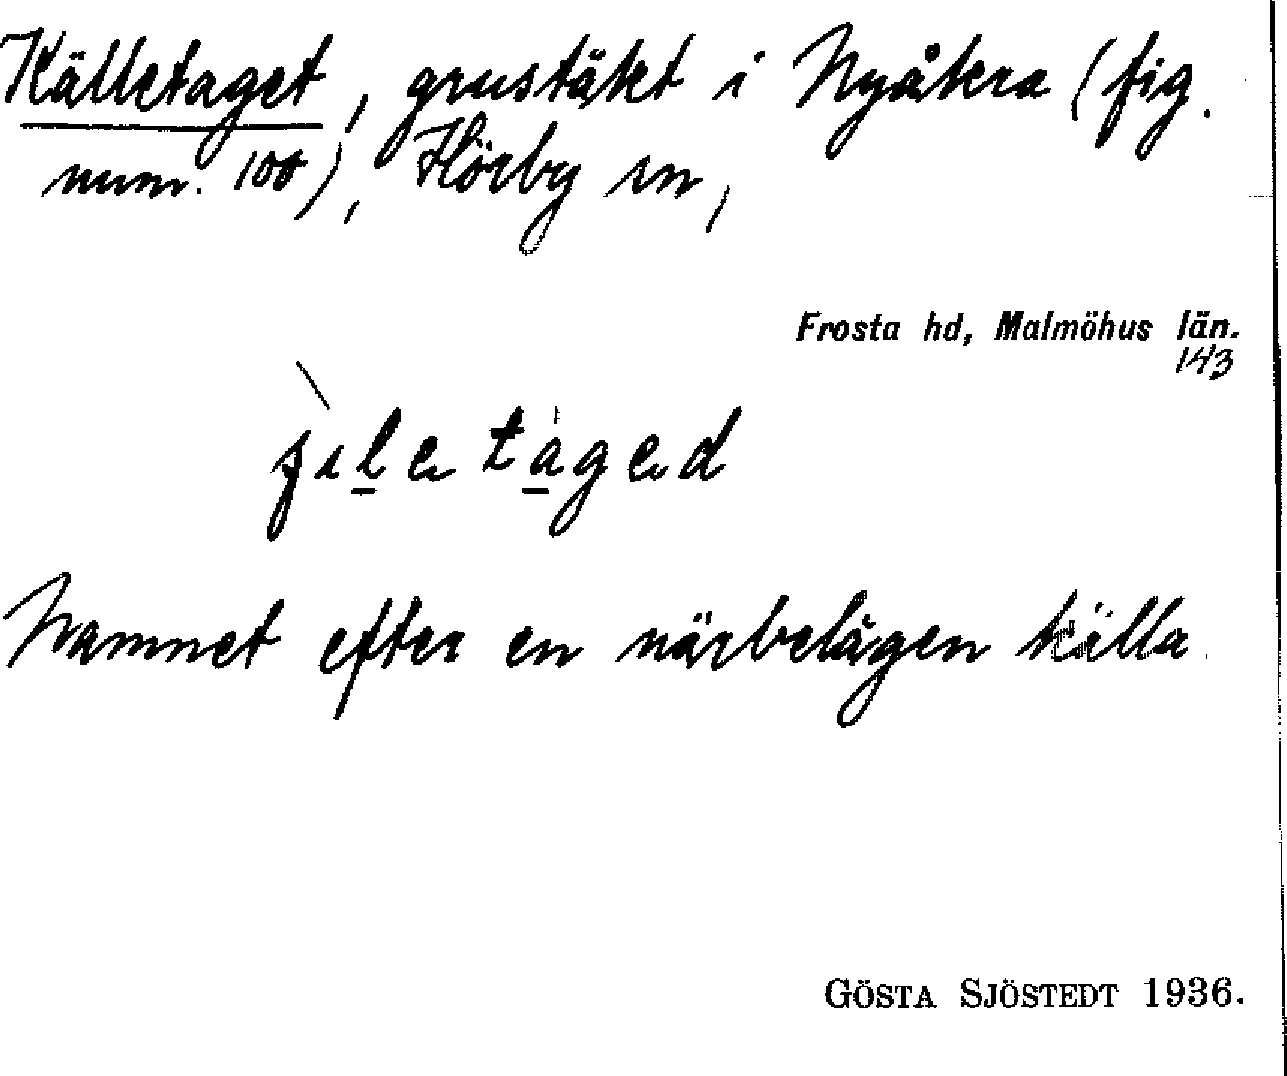 Källetaget, grustäkt i Nyåkra (fig.
num. 100), Hörby sn,
Frosta hd, Malmöhus län.
143
Namnet efter en närbelägen källa.
GÖSTA SJÖSTEDT 1936.